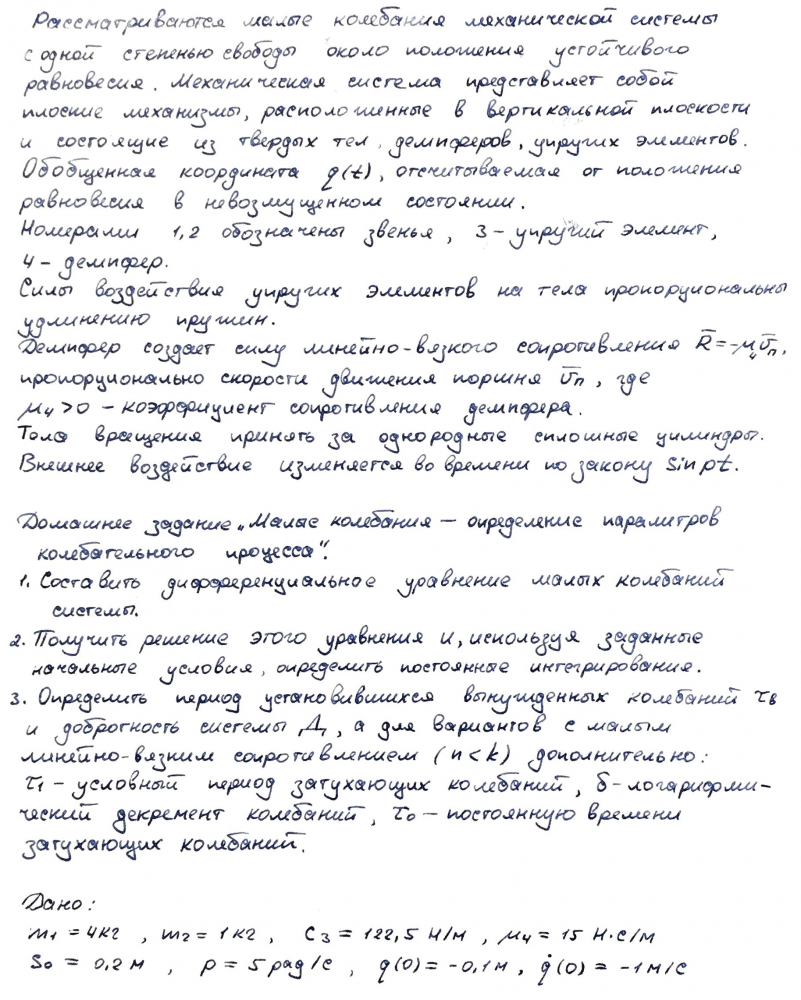 Рассматриваются малые колебания механической системы
с одной степенью свободы около положения устойчивого
равновесия. Механическая система представляет собой
плоские механизмы, расположенные в вертикальной плоскости
и состоящие из твердых тел, демпферов, упругих элементов.
Обобщенная координата q(t), отсчитываемая от положения
равновесия в невозмущенном состоянии.
Номерами 1,2 обозначены звенья, 3 - упругий элемент,
4 - демпфер.
Силы воздействия упругих элементов на тела пропорциональны
удлинению пружин.
Демпфер создает силу линейно-вязкого сопротивления R̄ = -μ₄ῡₙ,
пропорционально скорости движения поршня ῡₙ, где
μ₄ > 0 - коэффициент сопротивления демпфера.
Тела вращения принять за однородные сплошные цилиндры.
Внешнее воздействие изменяется во времени по закону Sin pt.
Домашнее задание „Малые колебания - определение параметров
колебательного процесса".
1. Составить дифференциальное уравнение малых колебаний
системы.
2. Получить решение этого уравнения и, используя заданные
начальные условия, определить постоянные интегрирования.
3. Определить период установившихся вынужденных колебаний τв
и добротность системы Д, а для вариантов с малым
линейно-вязким сопротивлением (n < k) дополнительно:
τ₁ - условный период затухающих колебаний, δ - логарифми-
ческий декремент колебаний, τ₀ - постоянную времени
затухающих колебаний.
Дано:
m₁ = 4кг, m₂ = 1кг, C₃ = 122,5 Н/м, μ₄ = 15 Н·с/м
S₀ = 0,2 м, p = 5 рад/с, q(0) = -0,1м, q̇(0) = -1м/с